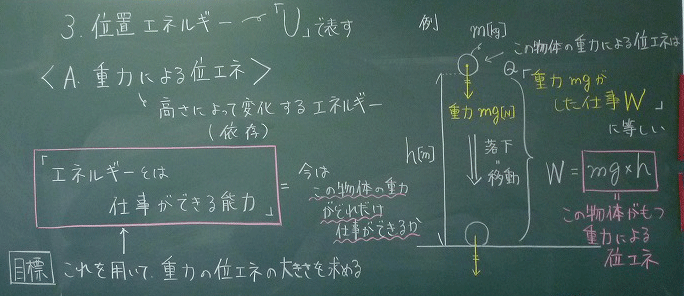 3. 位置エネルギー 〜「U」で表す
< A. 重力による位エネ >
高さによって変化するエネルギー
(依存)
「エネルギーとは
仕事ができる能力」
= 今は
この物体の重力
がどれだけ
仕事ができるか
目標 これを用いて、重力の位エネの大きさを求める
例
m[kg]
この物体の重力による位エネは
「重力mgが
した仕事W」
に等しい
重力mg[N]
h[m]
落下
=
移動
W = mg×h
=
この物体がもつ
重力による
位エネ